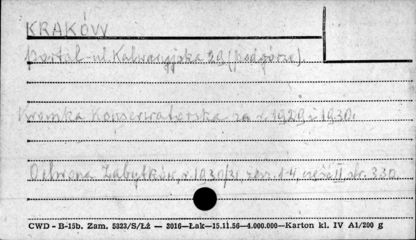 KRAKÓW
Portal - ul Kalwaryjska 29 (Podgórze).
Kronika Konserwatorska za r. 1929 i 1930.
Ochrona Zabytków, r. 1930/31, zesz. 1-4, część II, str. 330
CWD - B-15b. Zam. 5323/S/Łż — 3016—Łak—15.11.56—4.000.000—Karton kl. IV A1/200 g